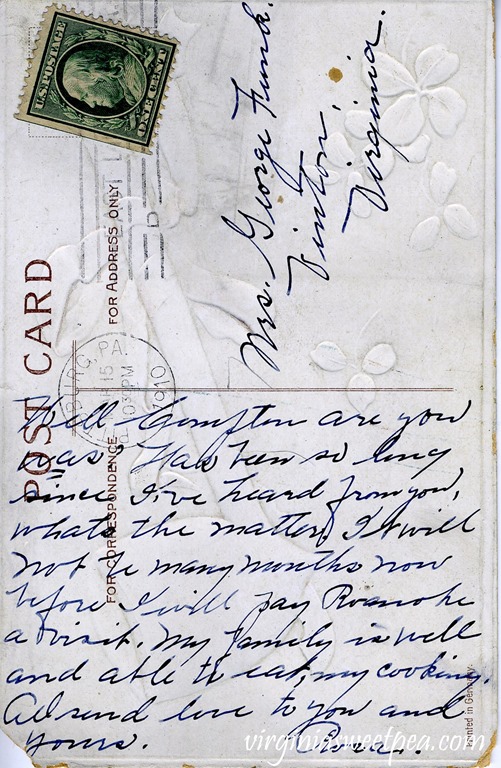 U.S. POSTAGE
ONE CENT
POST CARD
FOR ADDRESS ONLY
FOR CORRESPONDENCE
BURG, PA.
15
PM
1910
Mrs. George Funk.
Vinton,
Virginia.
Well Compton are you
. Has been so long
since I've heard from you,
whats the matter. It will
not be many months now
before I will pay Roanoke
a visit. My family is well
and able to eat, my cooking.
All send love to you and
yours.
Printed in Germany
virginiasweetpea.com